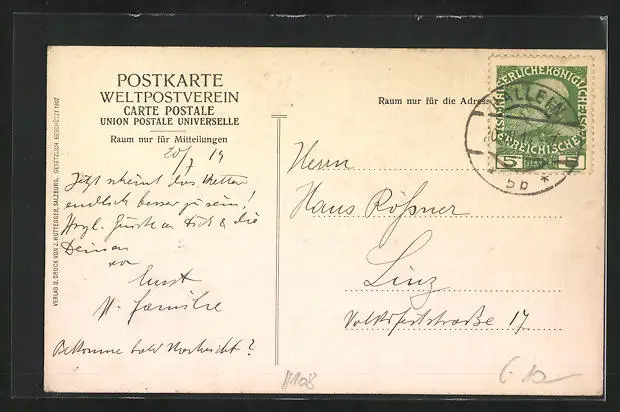 POSTKARTE
WELTPOSTVEREIN
CARTE POSTALE
UNION POSTALE UNIVERSELLE
Raum nur für Mitteilungen
20/7 14
Jetzt scheint das Wetter
endlich besser zu sein!
Herzl. Grüße an Dich & die
Deinen
von
Ernst
u. Familie
Bekomme bald Nachricht?
VERLAG U. DRUCK VON J. HUTTEGGER, SALZBURG. GESETZLICH GESCHÜTZT 1907
Raum nur für die Adresse
KAISERLICHEKÖNIGLICHE
ÖSTERREICHISCHE
5 5
HALLEIN
5b *
Herrn
Hans Rößner
Linz
Volksfeststraße 17
H108